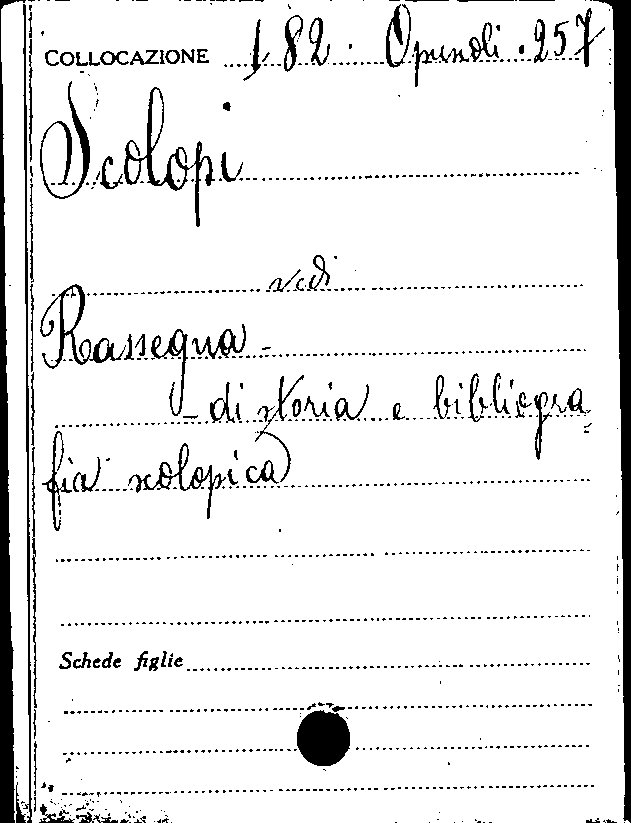 COLLOCAZIONE 182. Opuscoli.257
Scolopi
vedi
Rassegna -
- di storia e bibliogra=
fia scolopica
Schede figlie